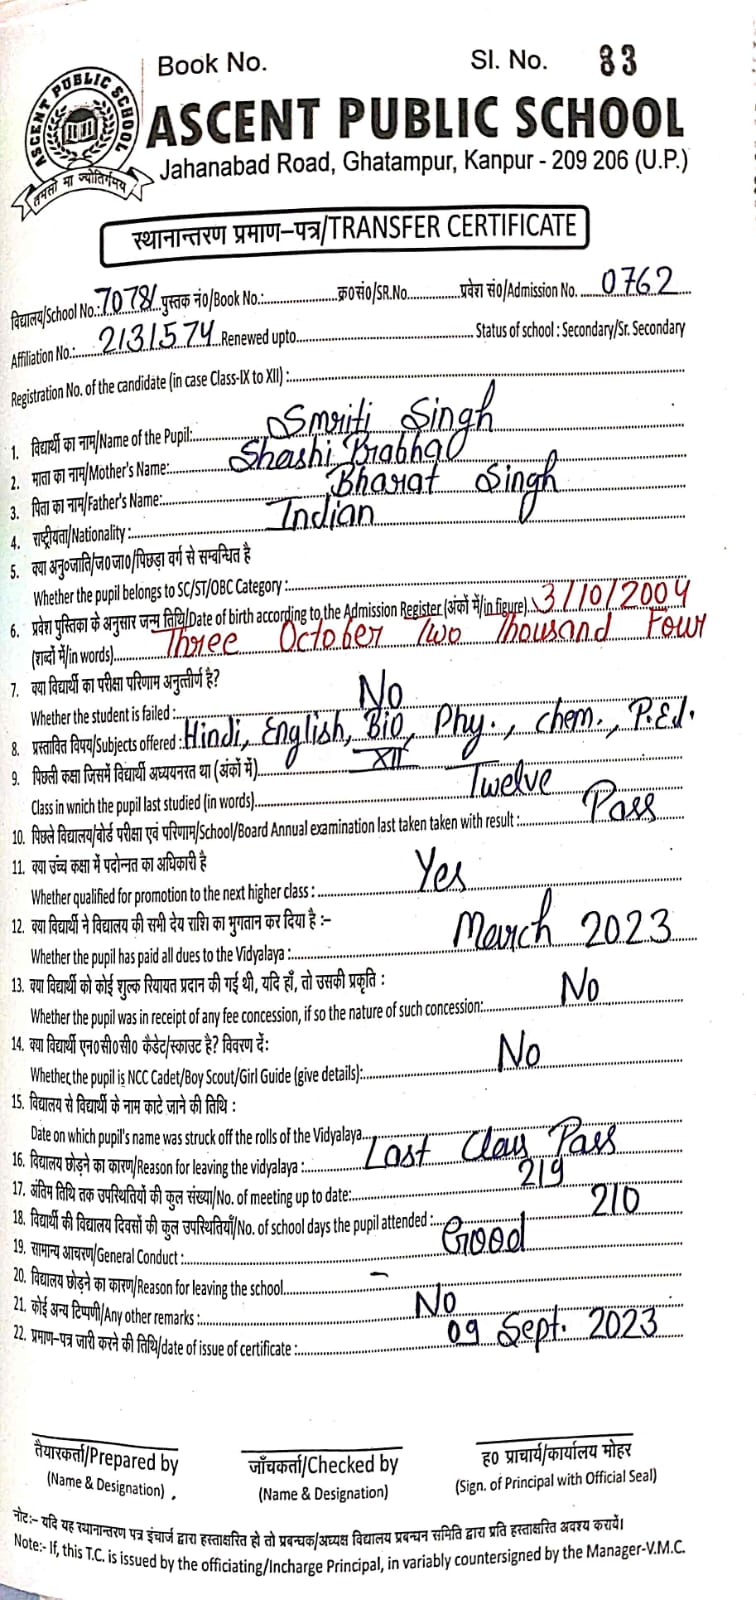 Book No. Sl. No. 83
ASCENT PUBLIC SCHOOL
तमसो मा ज्योतिर्गमय
ASCENT PUBLIC SCHOOL
Jahanabad Road, Ghatampur, Kanpur - 209 206 (U.P.)
स्थानान्तरण प्रमाण–पत्र/TRANSFER CERTIFICATE
विद्यालय/School No.: 7078/ पुस्तक नं0/Book No.:.......... क्र0सं0/SR.No.......... प्रवेश सं0/Admission No. ..... 0762
Affiliation No.:..... 2131574 Renewed upto.......... Status of school : Secondary/Sr. Secondary
Registration No. of the candidate (in case Class-IX to XII) :..........
1. विद्यार्थी का नाम/Name of the Pupil:..... Smriti Singh
2. माता का नाम/Mother's Name:..... Shashi Prabha
3. पिता का नाम/Father's Name:..... Bharat Singh
4. राष्ट्रीयता/Nationality :..... Indian
5. क्या अनु०जाति/ज०जा०/पिछड़ा वर्ग से सम्बन्धित है
Whether the pupil belongs to SC/ST/OBC Category :..........
6. प्रवेश पुस्तिका के अनुसार जन्म तिथि/Date of birth according to the Admission Register (अंकों में/in figure) 3/10/2004
(शब्दों में/in words)..... Three October Two Thousand Four
7. क्या विद्यार्थी का परीक्षा परिणाम अनुत्तीर्ण है?
Whether the student is failed :..... No
8. प्रस्तावित विषय/Subjects offered : Hindi, English, Bio, Phy., Chem., P.Ed.
9. पिछली कक्षा जिसमें विद्यार्थी अध्ययनरत था (अंकों में)..... XII
Class in wnich the pupil last studied (in words)..... Twelve
10. पिछले विद्यालय/बोर्ड परीक्षा एवं परिणाम/School/Board Annual examination last taken taken with result :..... Pass
11. क्या उच्च कक्षा में पदोन्नत का अधिकारी है
Whether qualified for promotion to the next higher class :..... Yes
12. क्या विद्यार्थी ने विद्यालय की सभी देय राशि का भुगतान कर दिया है :–
Whether the pupil has paid all dues to the Vidyalaya :..... March 2023
13. क्या विद्यार्थी को कोई शुल्क रियायत प्रदान की गई थी, यदि हाँ, तो उसकी प्रकृति :
Whether the pupil was in receipt of any fee concession, if so the nature of such concession:..... No
14. क्या विद्यार्थी एन०सी०सी० कैडेट/स्काउट है? विवरण दें:
Whether the pupil is NCC Cadet/Boy Scout/Girl Guide (give details):..... No
15. विद्यालय से विद्यार्थी के नाम काटे जाने की तिथि :
Date on which pupil's name was struck off the rolls of the Vidyalaya..........
16. विद्यालय छोड़ने का कारण/Reason for leaving the vidyalaya :..... Last Class Pass
17. अंतिम तिथि तक उपस्थितियों की कुल संख्या/No. of meeting up to date:..... 219
18. विद्यार्थी की विद्यालय दिवसों की कुल उपस्थितियाँ/No. of school days the pupil attended :..... 210
19. सामान्य आचरण/General Conduct :..... Good
20. विद्यालय छोड़ने का कारण/Reason for leaving the school..... –
21. कोई अन्य टिप्पणी/Any other remarks :..... No
22. प्रमाण–पत्र जारी करने की तिथि/date of issue of certificate :..... 09 Sept. 2023
तैयारकर्ता/Prepared by जाँचकर्ता/Checked by ह0 प्राचार्य/कार्यालय मोहर
(Name & Designation) . (Name & Designation) (Sign. of Principal with Official Seal)
नोट:– यदि यह स्थानान्तरण पत्र इंचार्ज द्वारा हस्ताक्षरित हो तो प्रबन्धक/अध्यक्ष विद्यालय प्रबन्धन समिति द्वारा प्रति हस्ताक्षरित अवश्य करायें।
Note:- If, this T.C. is issued by the officiating/Incharge Principal, in variably countersigned by the Manager-V.M.C.